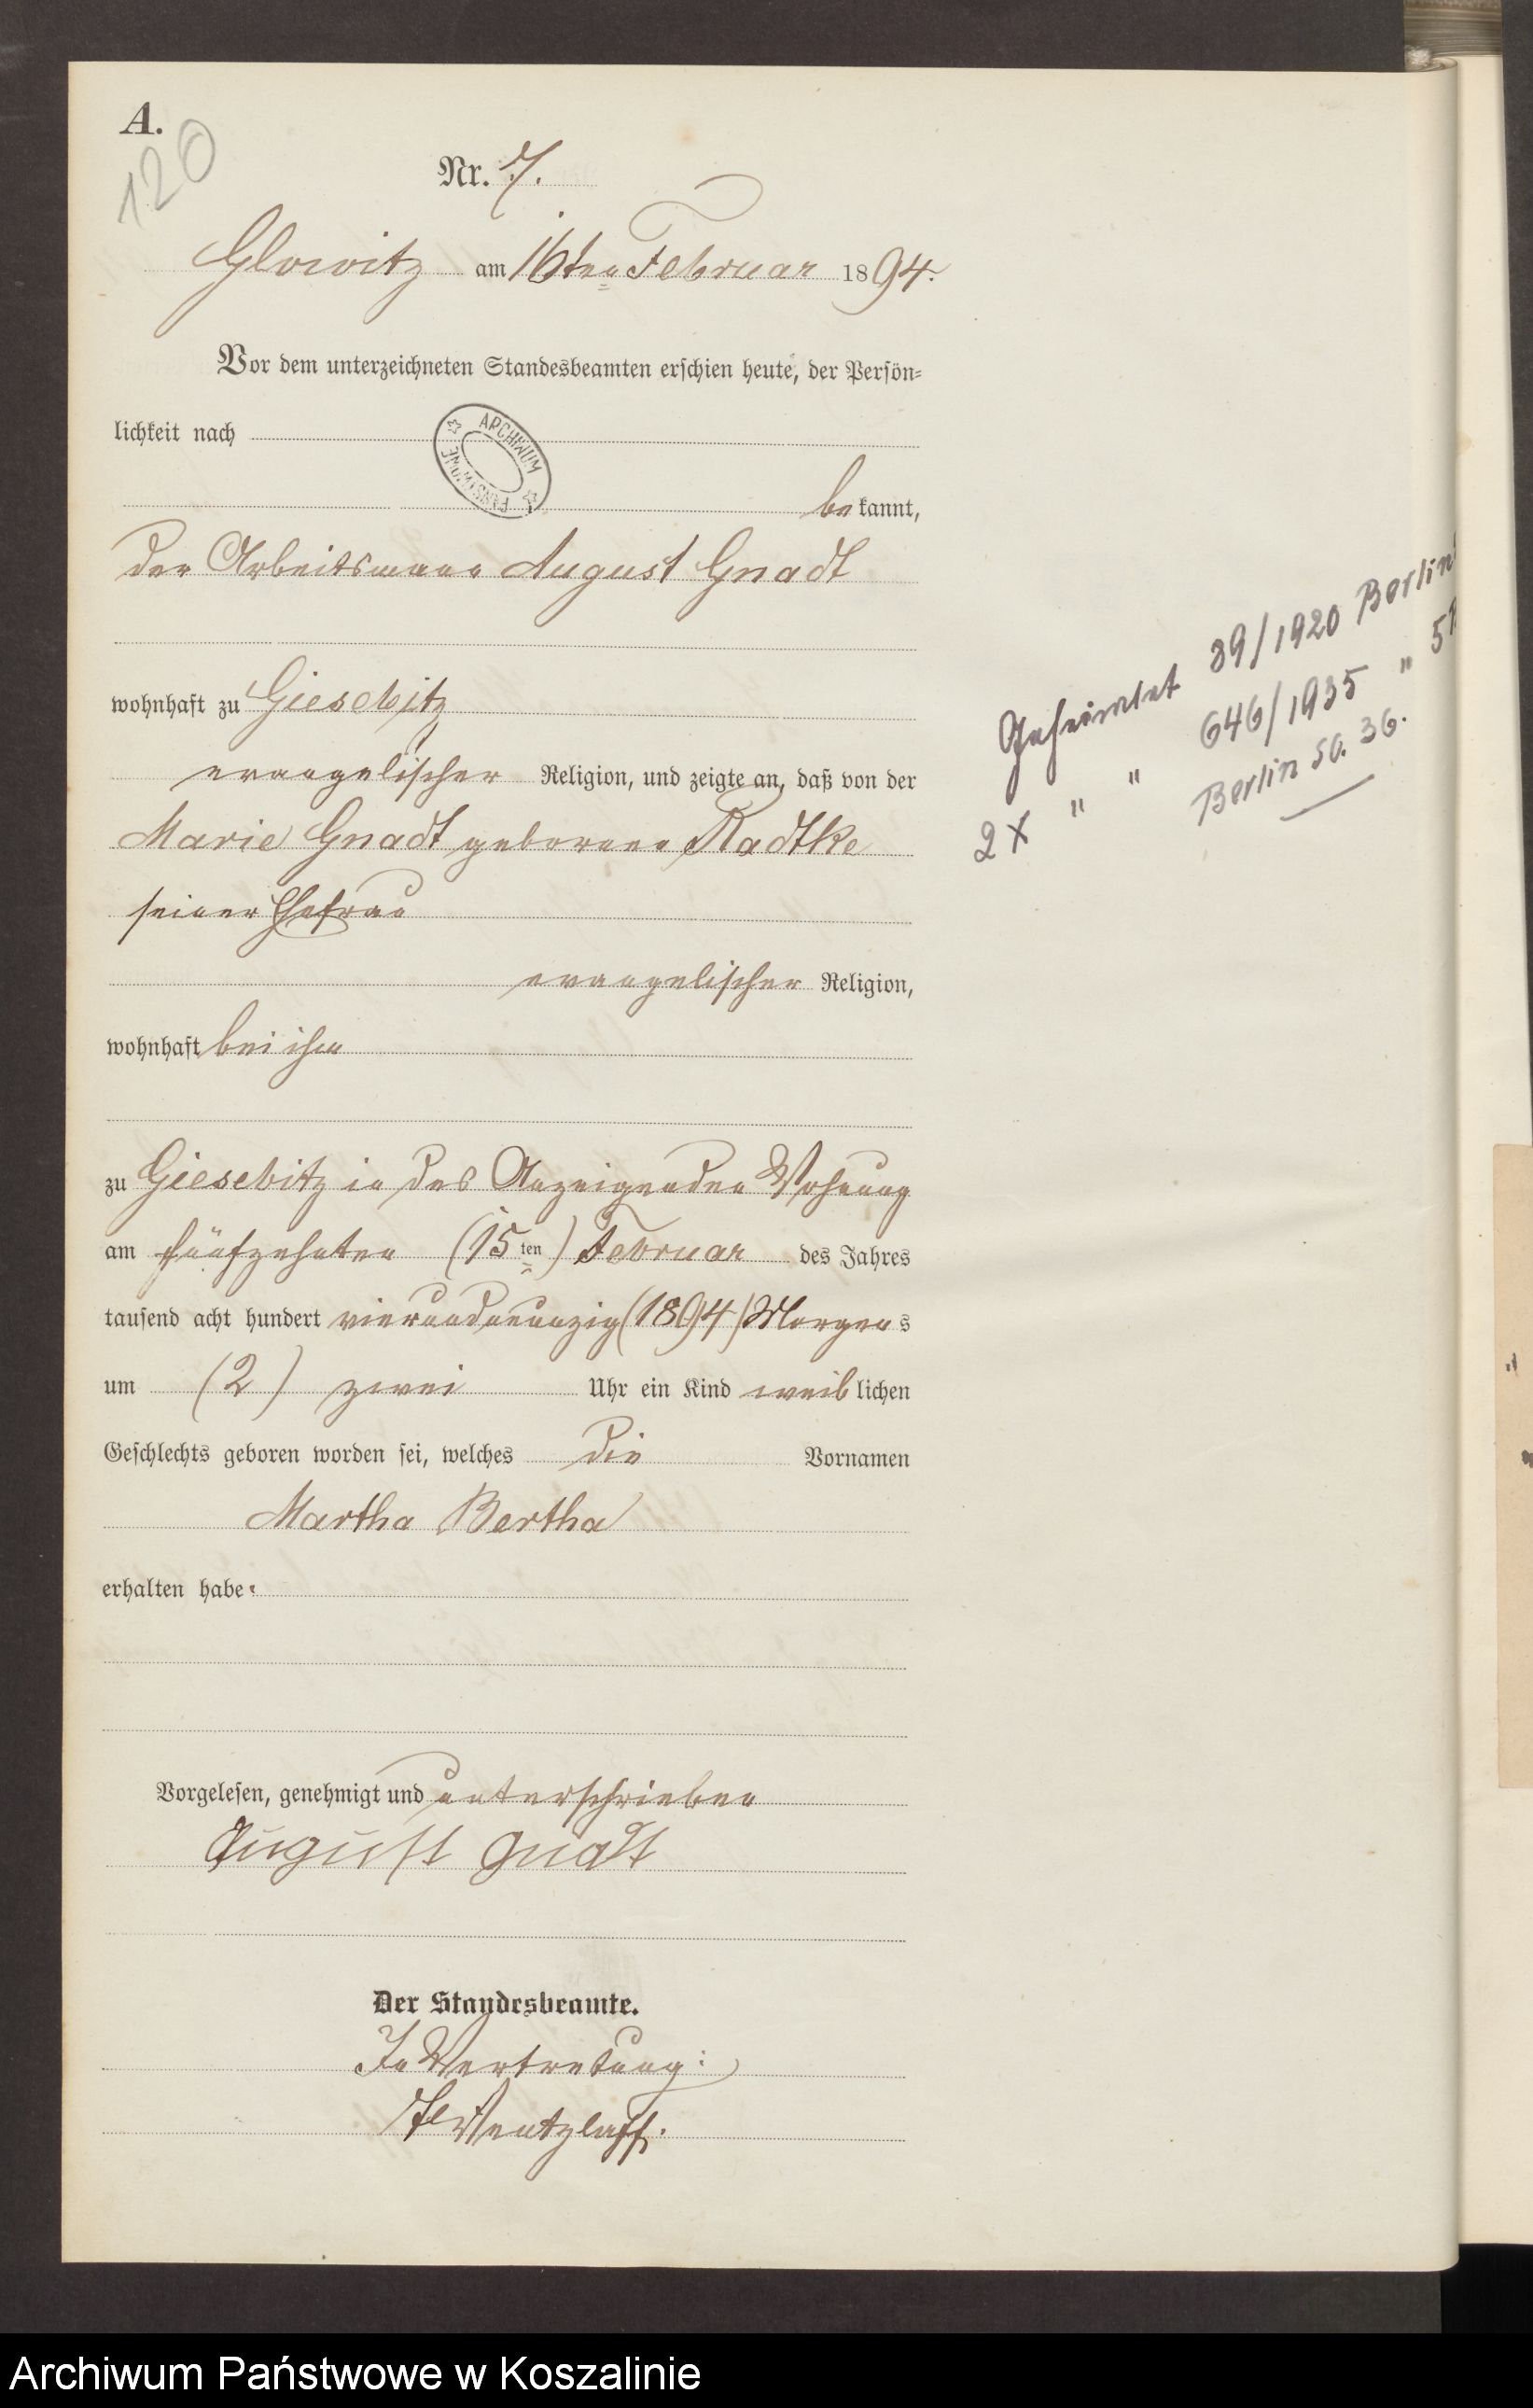 A.
120
Nr. 7.
Glowitz am 16ten Februar 1894.
Vor dem unterzeichneten Standesbeamten erschien heute, der Persön=
lichkeit nach
ARCHIWUM PAŃSTWOWE
bekannt,
der Arbeitsmann August Gnadt
wohnhaft zu Giesebitz
evangelischer Religion, und zeigte an, daß von der
Marie Gnadt geborene Radtke
seiner Ehefrau
evangelischer Religion,
wohnhaft bei ihm
zu Giesebitz in des Anzeigenden Wohnung
am fünfzehnten (15ten) Februar des Jahres
tausend acht hundert vierundneunzig (1894) Morgens
um (2) zwei Uhr ein Kind weiblichen
Geschlechts geboren worden sei, welches die Vornamen
Martha Bertha
erhalten habe.
Vorgelesen, genehmigt und unterschrieben
August Gnadt
Der Standesbeamte.
In Vertretung:
Wentzlaff.
Geheiratet 39/1920 Berlin
2 x " " 646/1935 "
Berlin SO. 36.
Archiwum Państwowe w Koszalinie